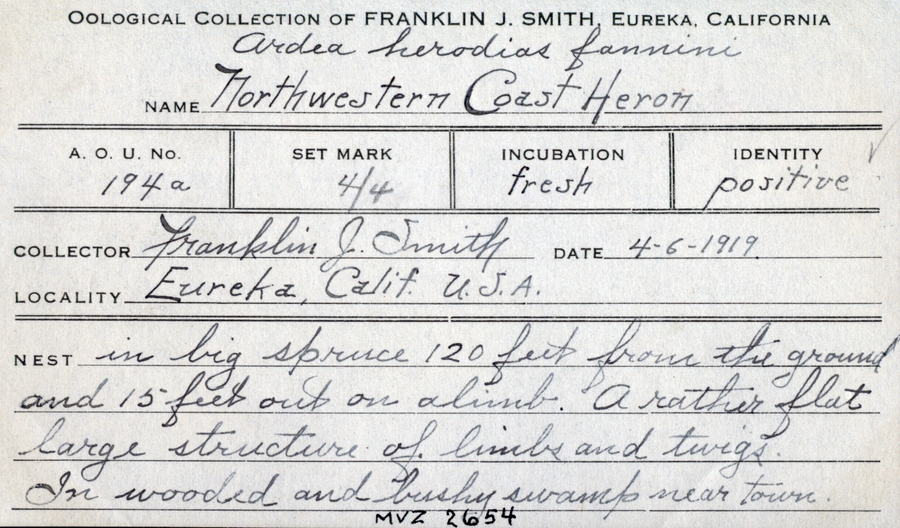 OOLOGICAL COLLECTION OF FRANKLIN J. SMITH, EUREKA, CALIFORNIA
Ardea herodias fannini
NAME Northwestern Coast Heron
A. O. U. NO. SET MARK INCUBATION IDENTITY
194a 4/4 fresh positive
COLLECTOR Franklin J. Smith DATE 4-6-1919.
LOCALITY Eureka, Calif. U.S.A.
NEST in big spruce 120 feet from the ground
and 15 feet out on a limb. A rather flat
large structure of limbs and twigs.
In wooded and bushy swamp near town.
MVZ 2654